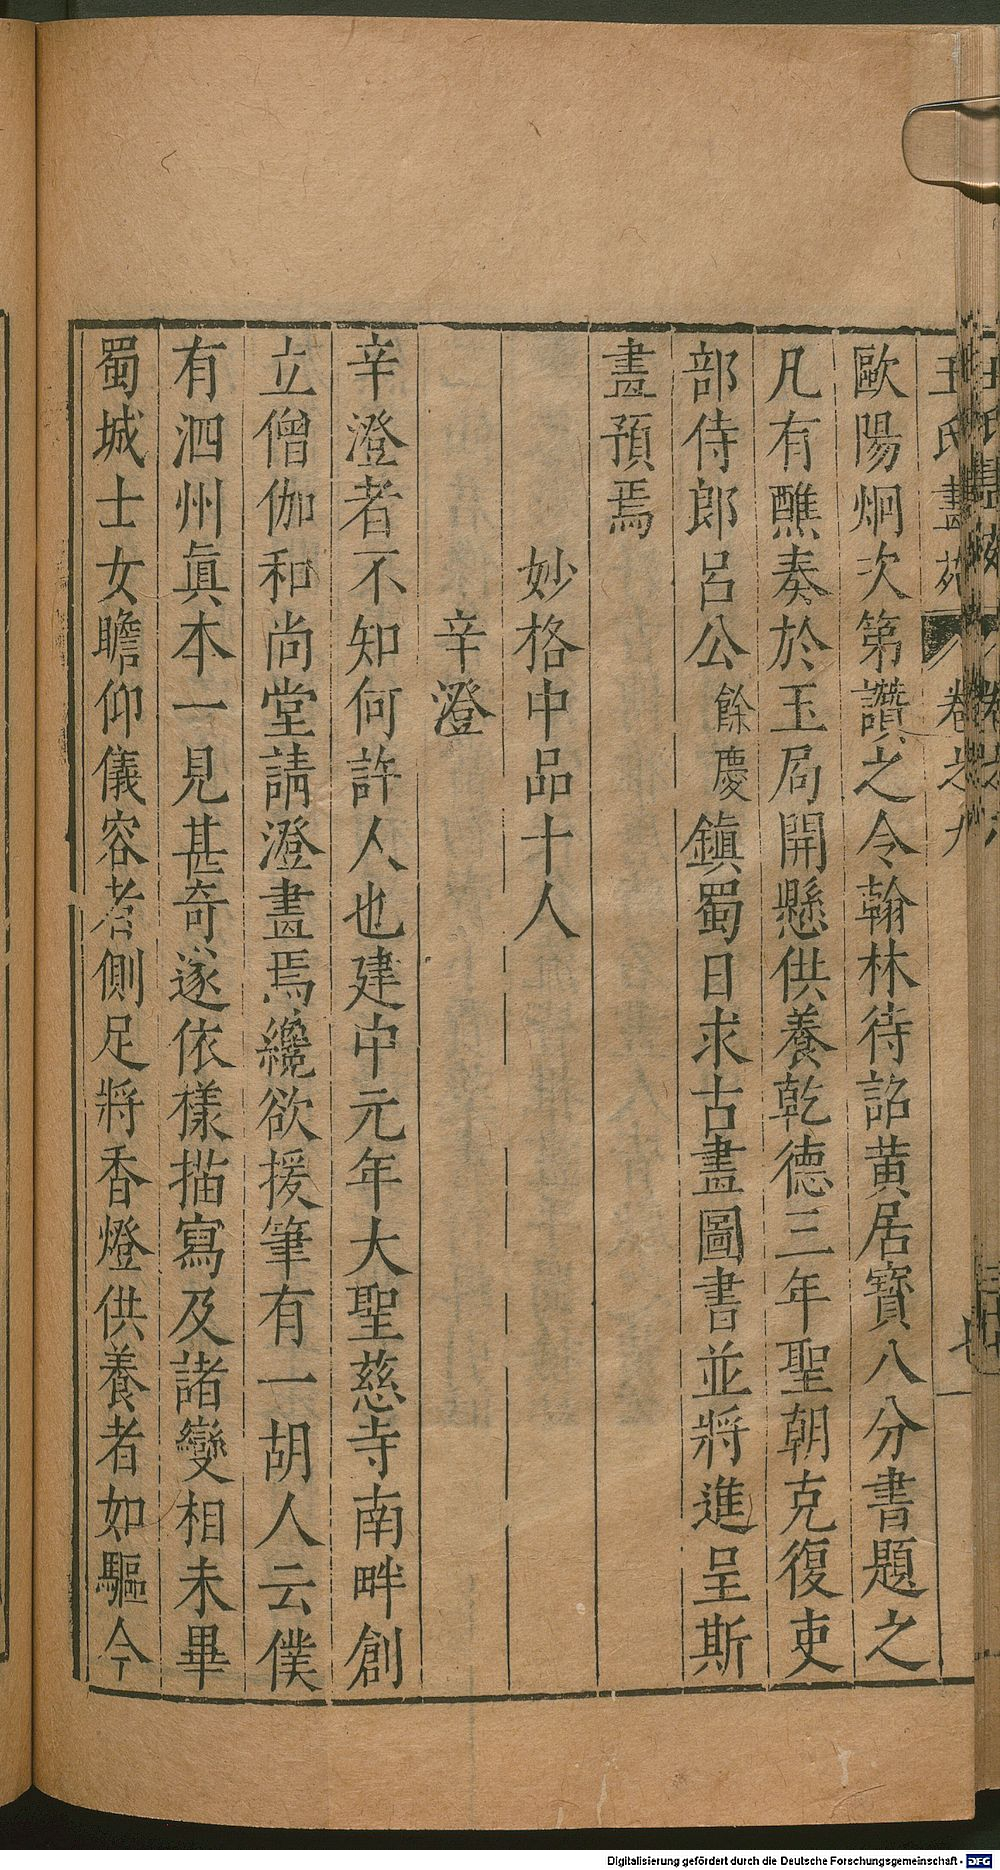 王氏畫苑 卷之九
歐陽炯次第讚之令翰林待詔黄居寶八分書題之
凡有醮奏於玉局開懸供養乾德三年聖朝克復吏
部侍郎呂公餘慶鎮蜀日求古畫圖書並將進呈斯
畫預焉
妙格中品十人
辛澄
辛澄者不知何許人也建中元年大聖慈寺南畔創
立僧伽和尚堂請澄畫焉纔欲援筆有一胡人云僕
有泗州眞本一見甚奇遂依樣描寫及諸變相未畢
蜀城士女瞻仰儀容者側足將香燈供養者如驅今
Digitalisierung gefördert durch die Deutsche Forschungsgemeinschaft - DFG